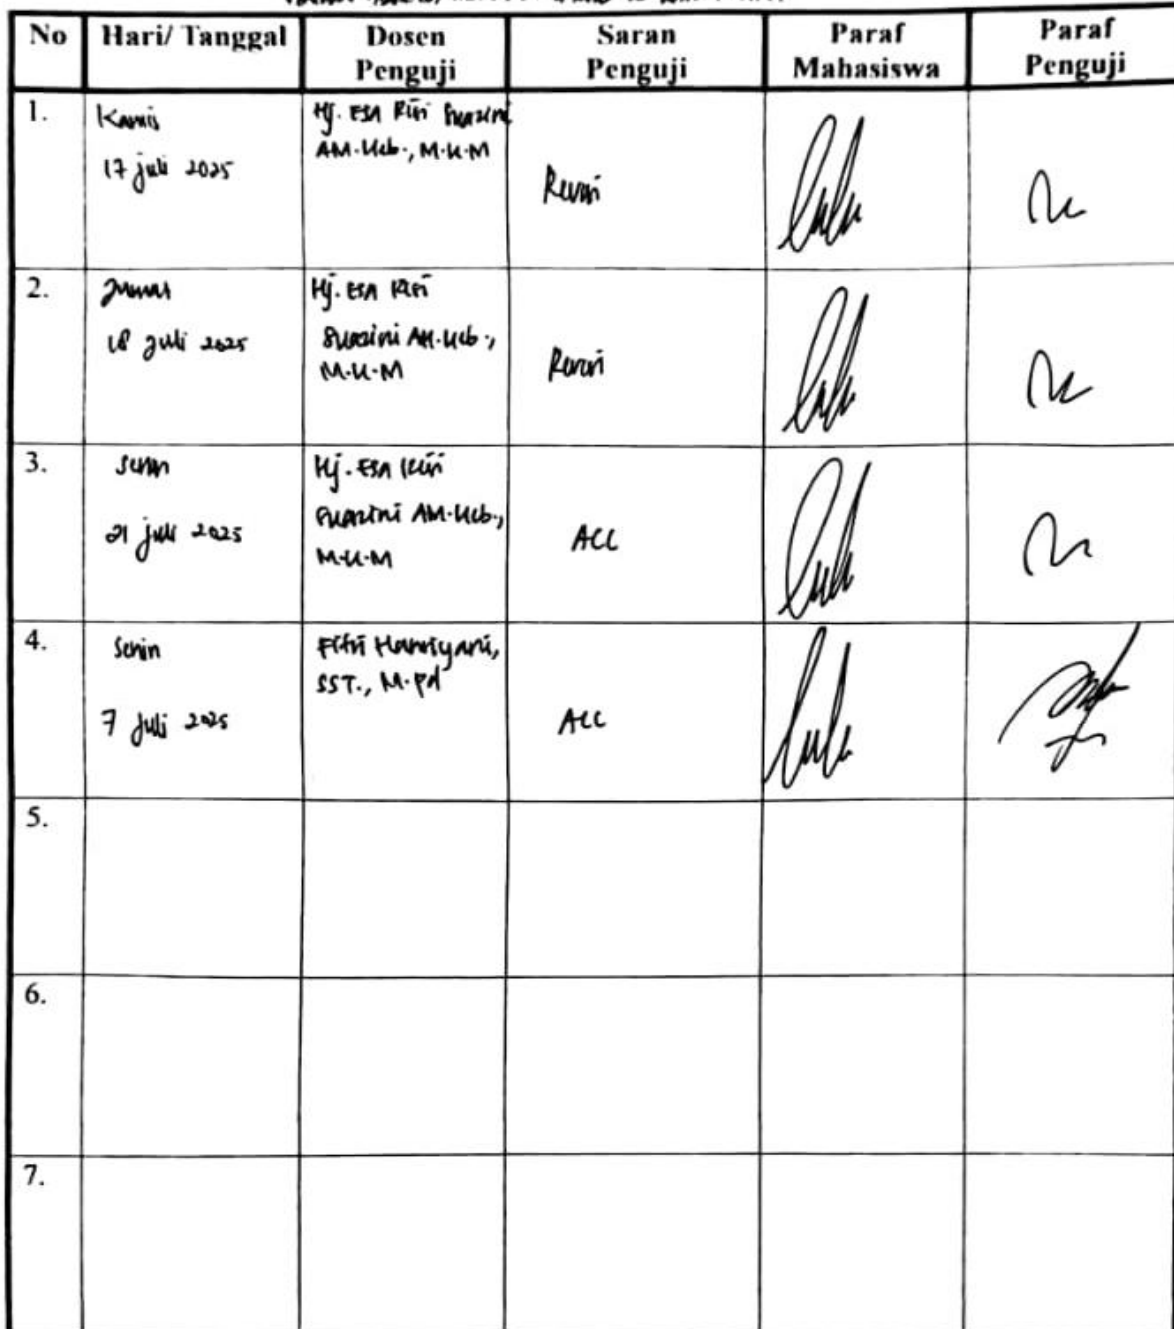 No Hari/ Tanggal Dosen Penguji Saran Penguji Paraf Mahasiswa Paraf Penguji
1. Kamis
17 juli 2025
Hj. ESA
AM.Keb., M.K.M
Revisi
2. Jumat
18 juli 2025
Hj. ESA
AM.Keb.,
M.K.M
Revisi
3. Senin
21 juli 2025
Hj. ESA
AM.Keb.,
M.K.M
ACC
4. Senin
7 juli 2025
Fitri Hanriyani,
SST., M.Pd
ACC
5.
6.
7.